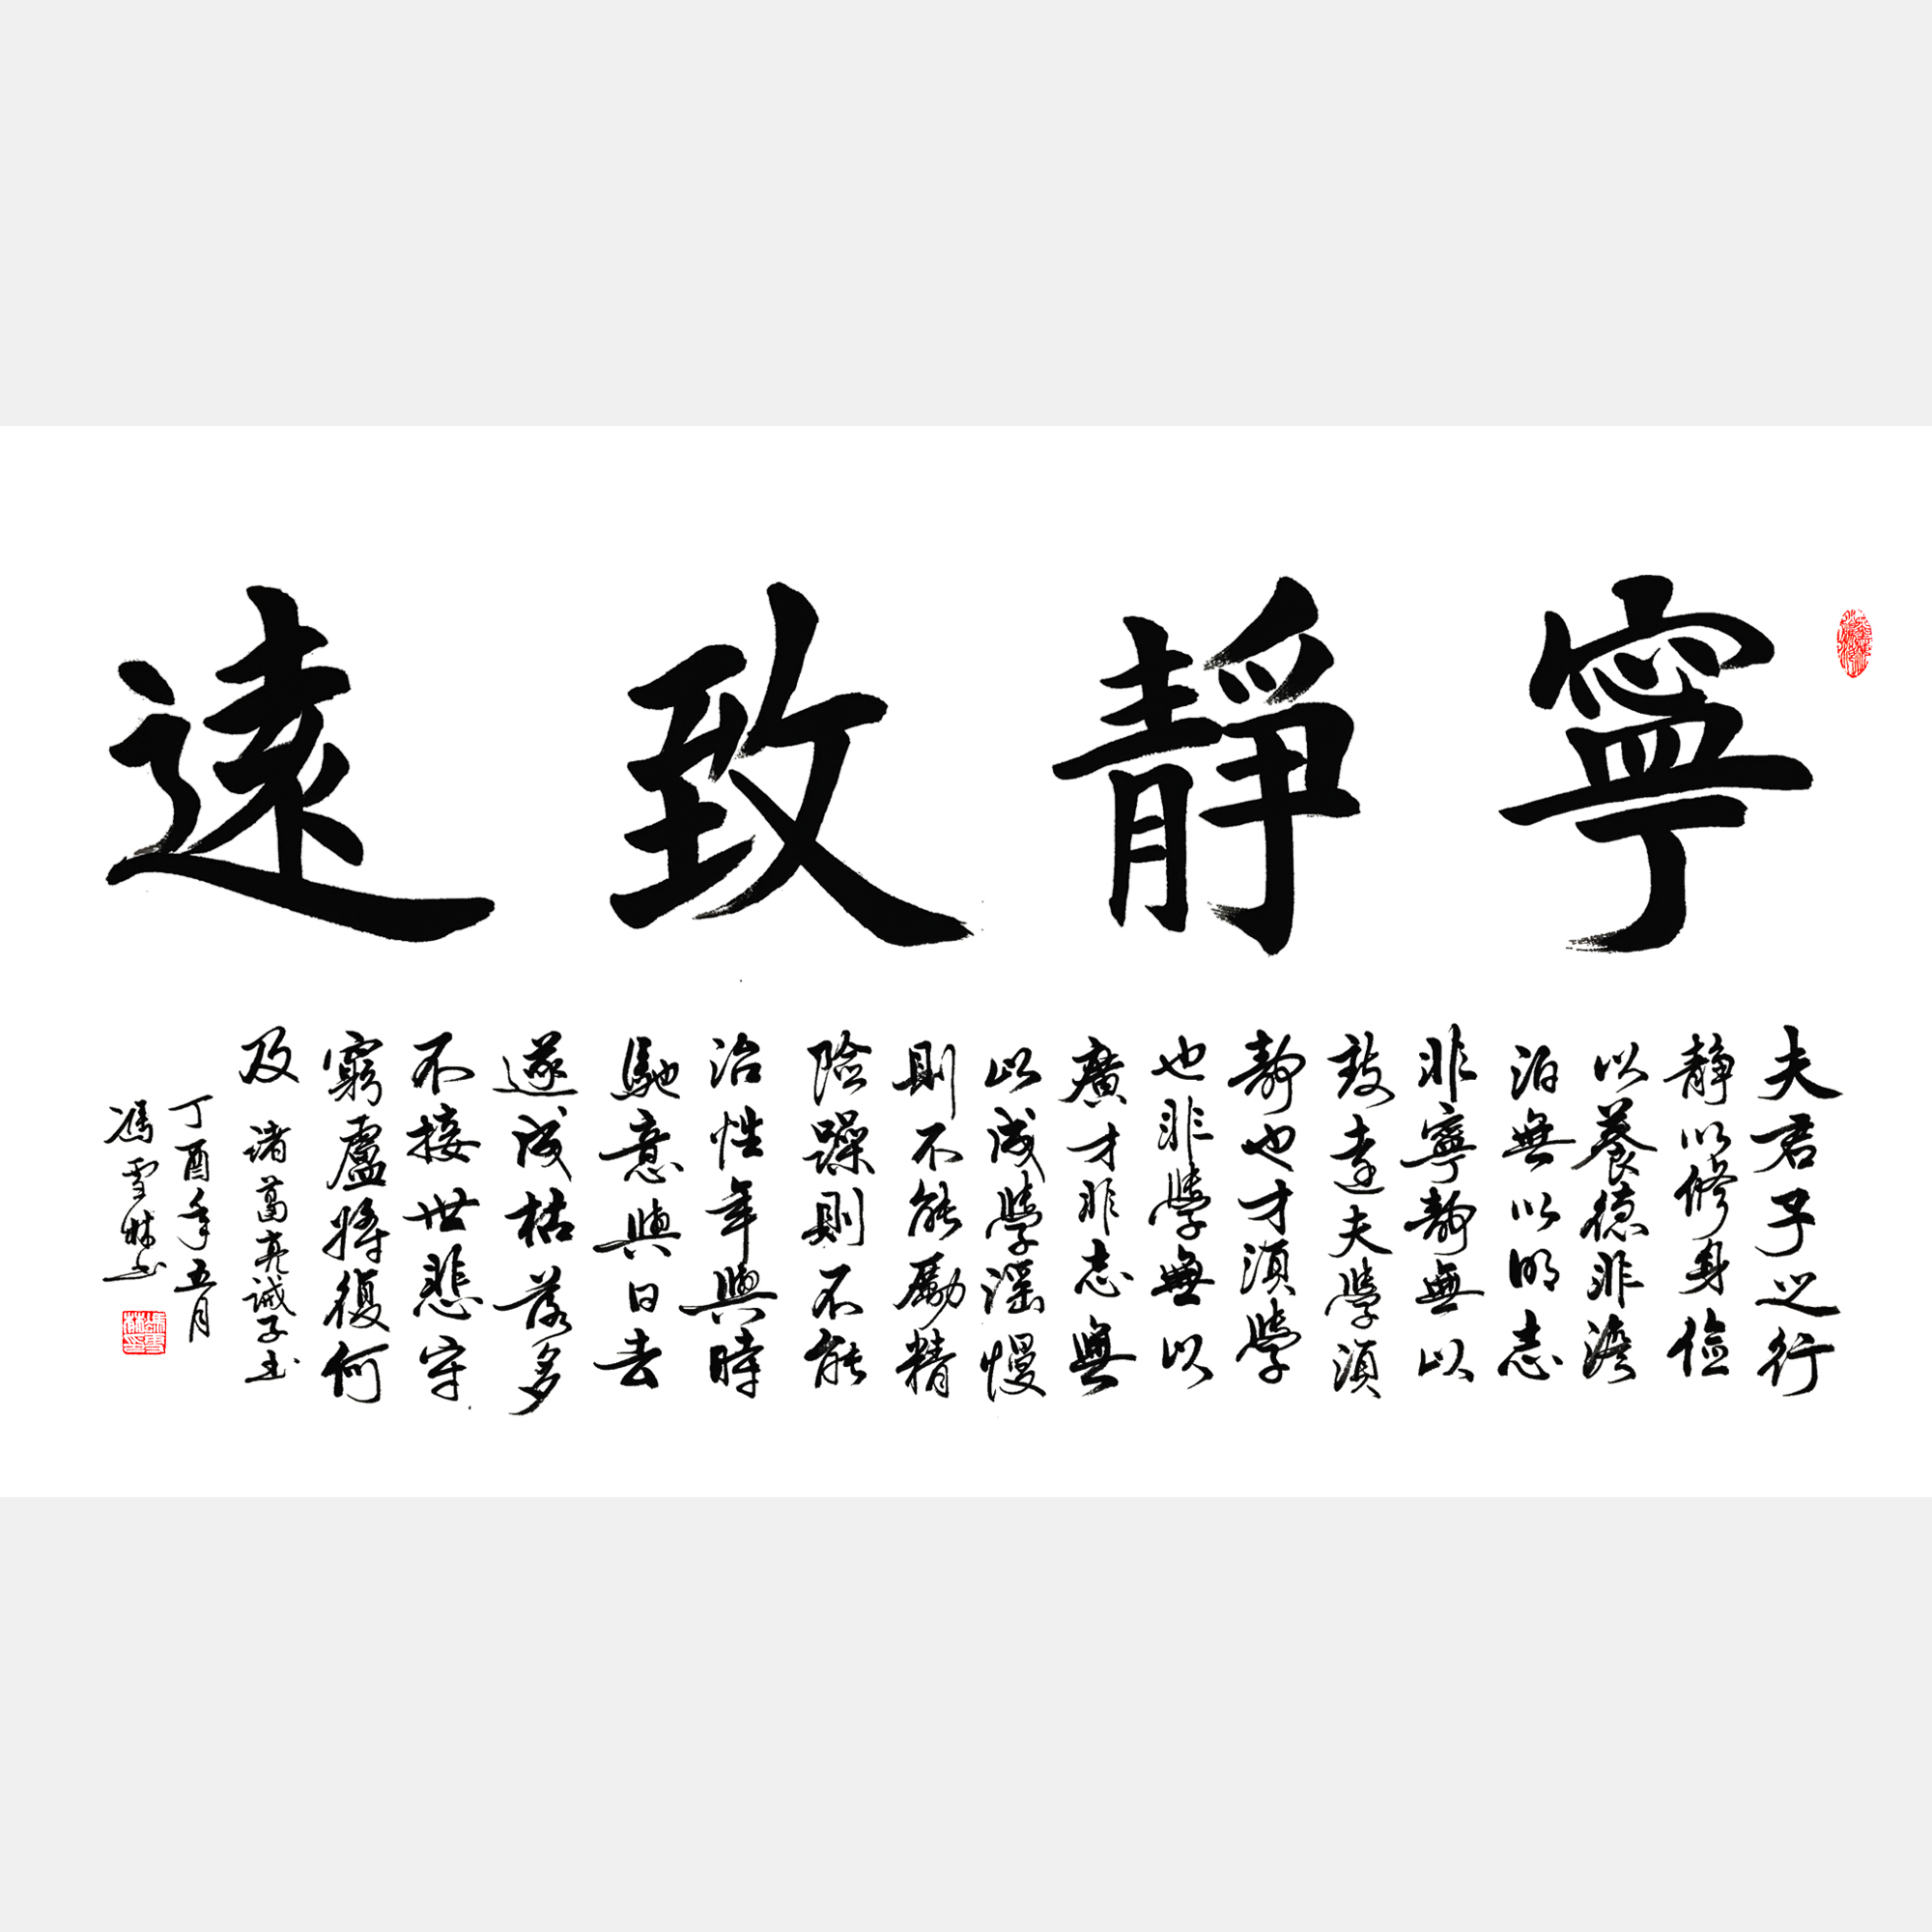 寧靜致遠
夫君子之行
静以修身儉
以養德非澹
泊無以明志
非寧静無以
致遠夫學須
静也才須學
也非學無以
廣才非志無
以成學滛慢
則不能勵精
險躁則不能
治性年與時
馳意與日去
遂成枯落多
不接世悲守
窮盧將復何
及 諸葛亮誡子书
丁酉年五月
馮雪林书